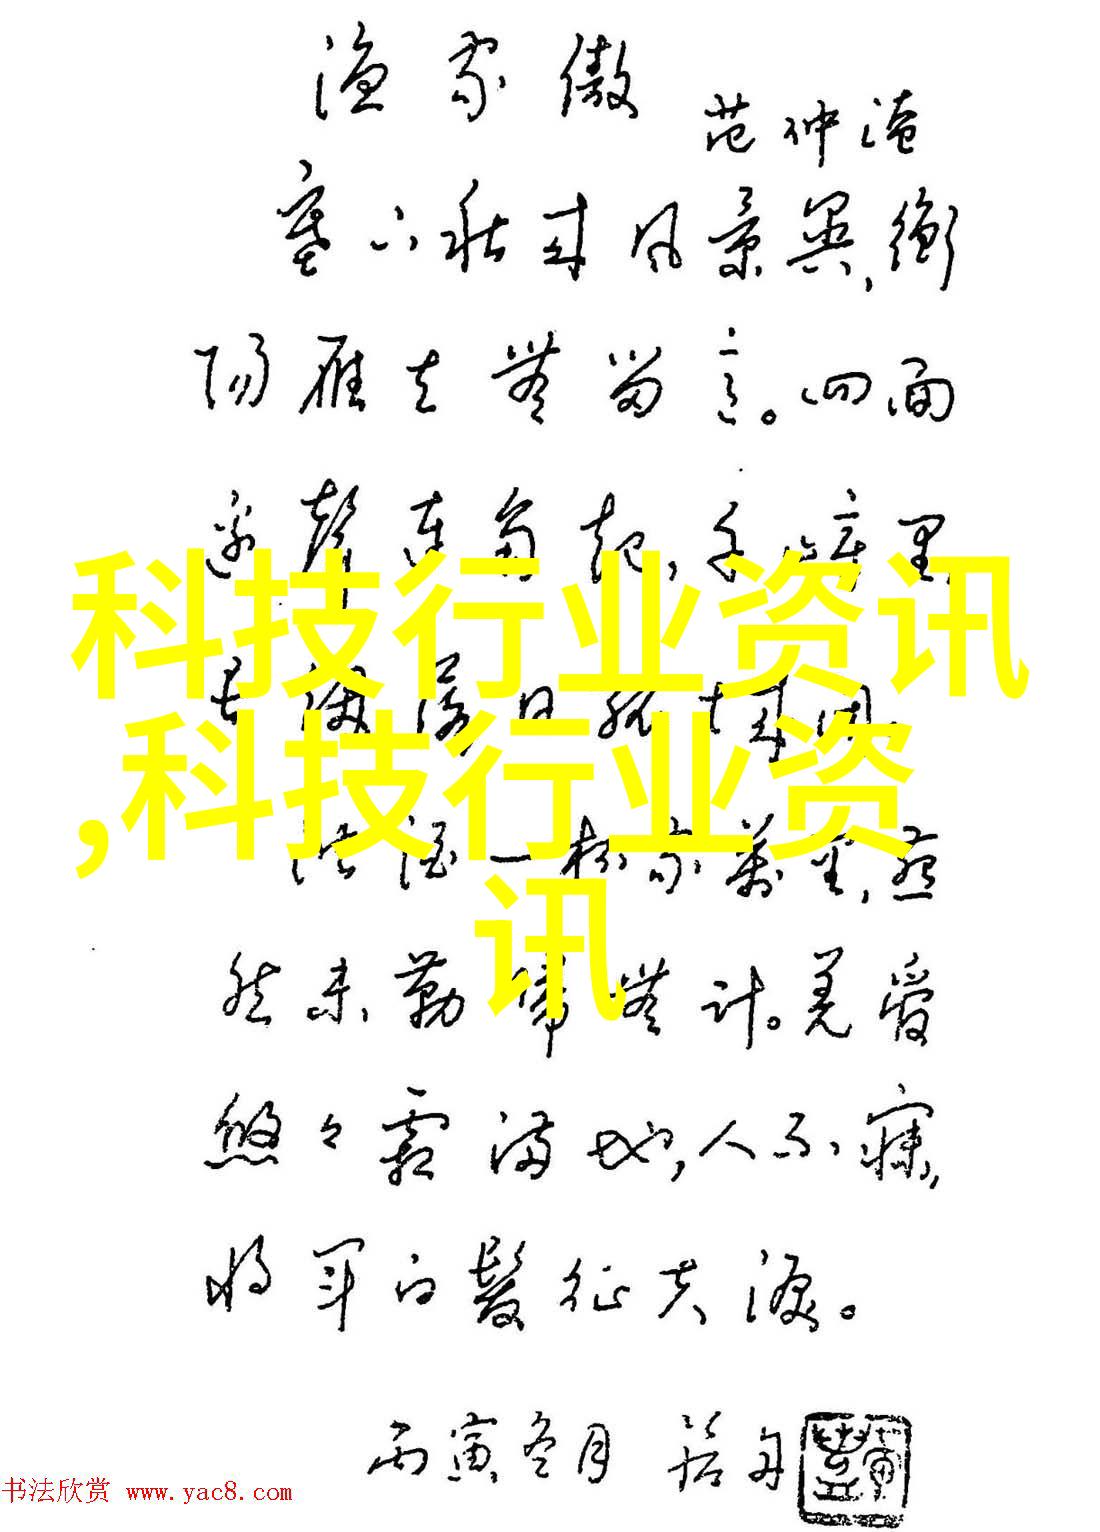 渔家傲 范仲淹
塞下秋来风景異,衡
阳雁去無留意。四面
邊聲连角起,千嶂里,
长烟落日孤城闭。
浊酒一杯家萬里,燕
然未勒歸無计。羌管
悠々霜满地,人不寐,
将军白髮征夫淚。
丙寅冬月
科技行业资讯
,科技行业资
讯
书法欣赏 www.yac8.com